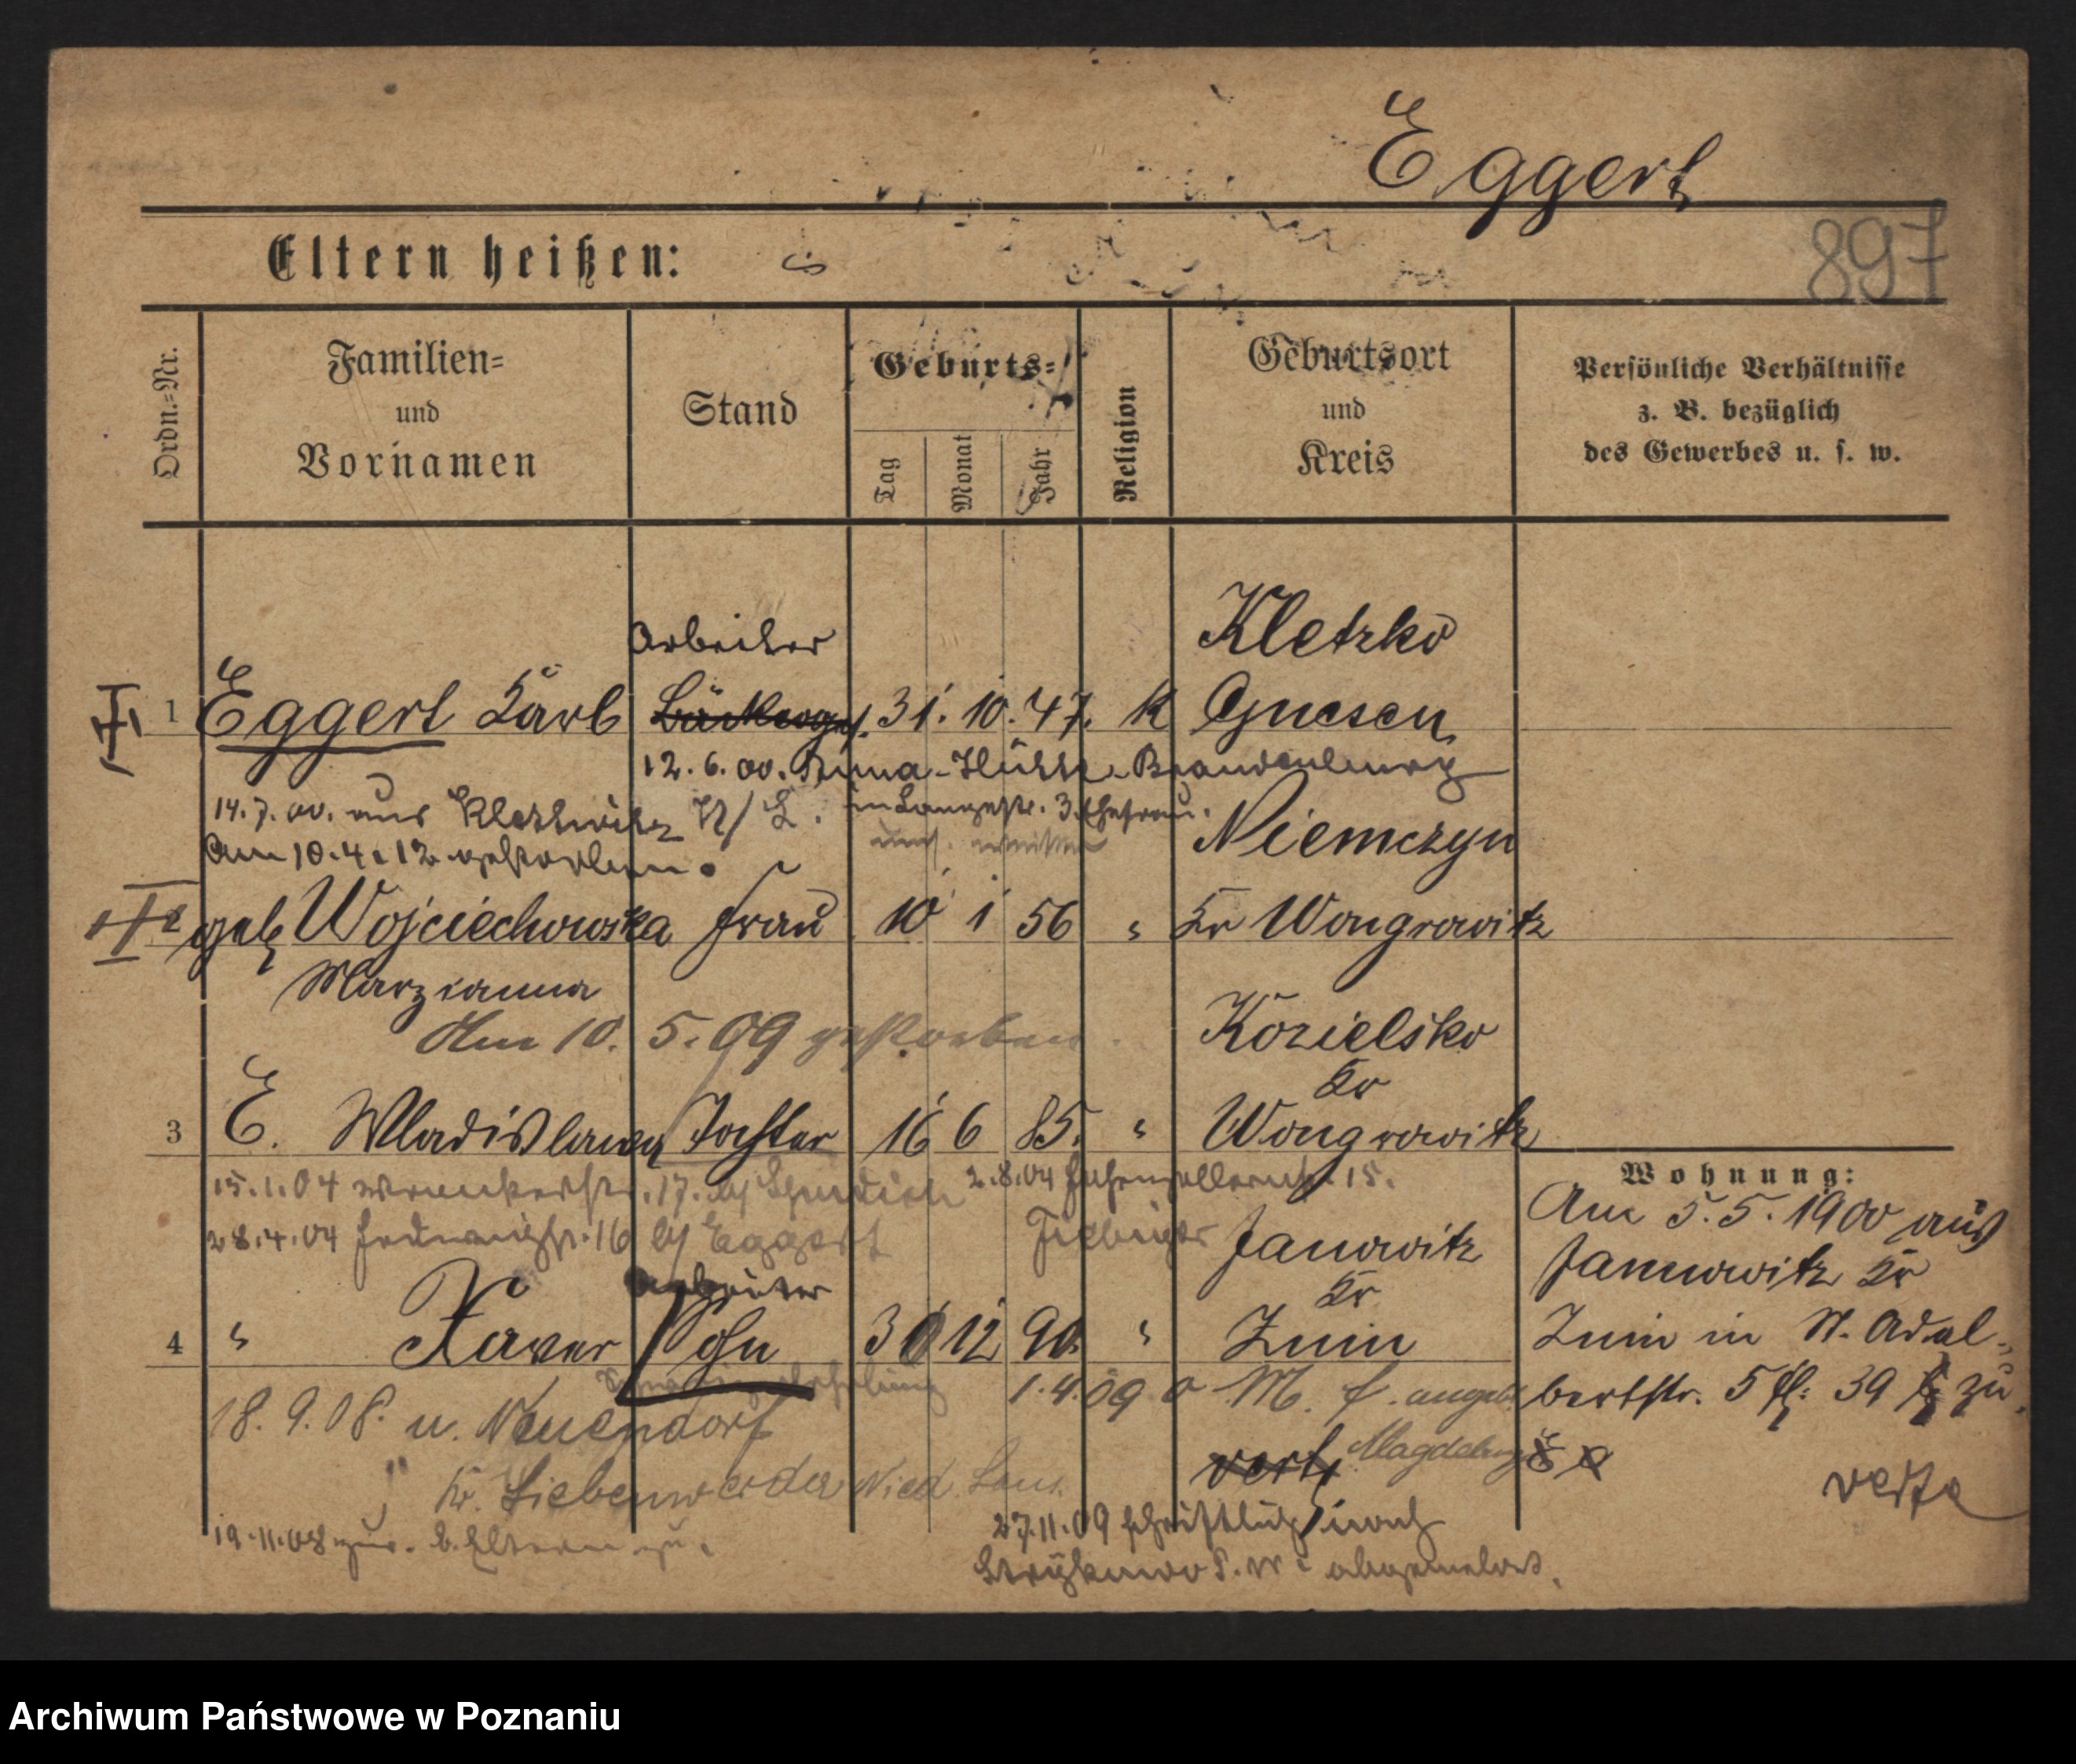 Eggert
897
Eltern heißen:
Ordn.-Nr.
Familien-
und
Vornamen
Stand
Geburts-
Tag
Monat
Jahr
Religion
Geburtsort
und
Kreis
Persönliche Verhältnisse
z. B. bezüglich
des Gewerbes u. s. w.
Arbeiter
Kletzko
1 Eggert Karl 31. 10. 47. K Gnesen
12. 6. 00. Anna-Hütte Brandenburg
14. 7. 00. aus N/L. in Langestr. 3. Ehefrau.
Am 10. 4. 12 gestorben.
Niemczyn
2 geb Wojciechowska Frau 10 1 56 " Kr Wongrowitz
Marzianna
Am 10. 5. 09 gestorben.
Kozielsko
Kr
3 E. Wladislawa Tochter 16 6 85. " Wongrowitz
Wohnung:
15. 1. 04 17. by 2. 8. 04 Hohenzollernstr. 15.
28. 4. 04 16 by Eggert Fiebiger
Janowitz
Kr
Arbeiter
4 " Xaver Sohn 30 12 90. " Znin
Am 5. 5. 1900 aus
Janowitz Kr
Znin in St. Adal-
bertstr. 5 39 zu.
1. 4. 09 a M. f.
18. 9. 08. u. Neuendorf
Magdeburg
Kr. Liebenwerder Nied. Laus.
19. 11. 08 zur. b. Eltern zu.
27. 11. 09 schriftlich nach
Strykowo P. W. abgemeldet.
Archiwum Państwowe w Poznaniu